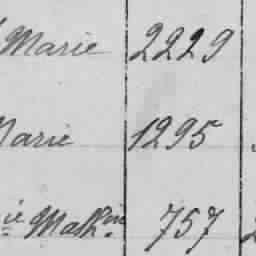 Marie 2229
Marie 1295
ie Math.ine 757